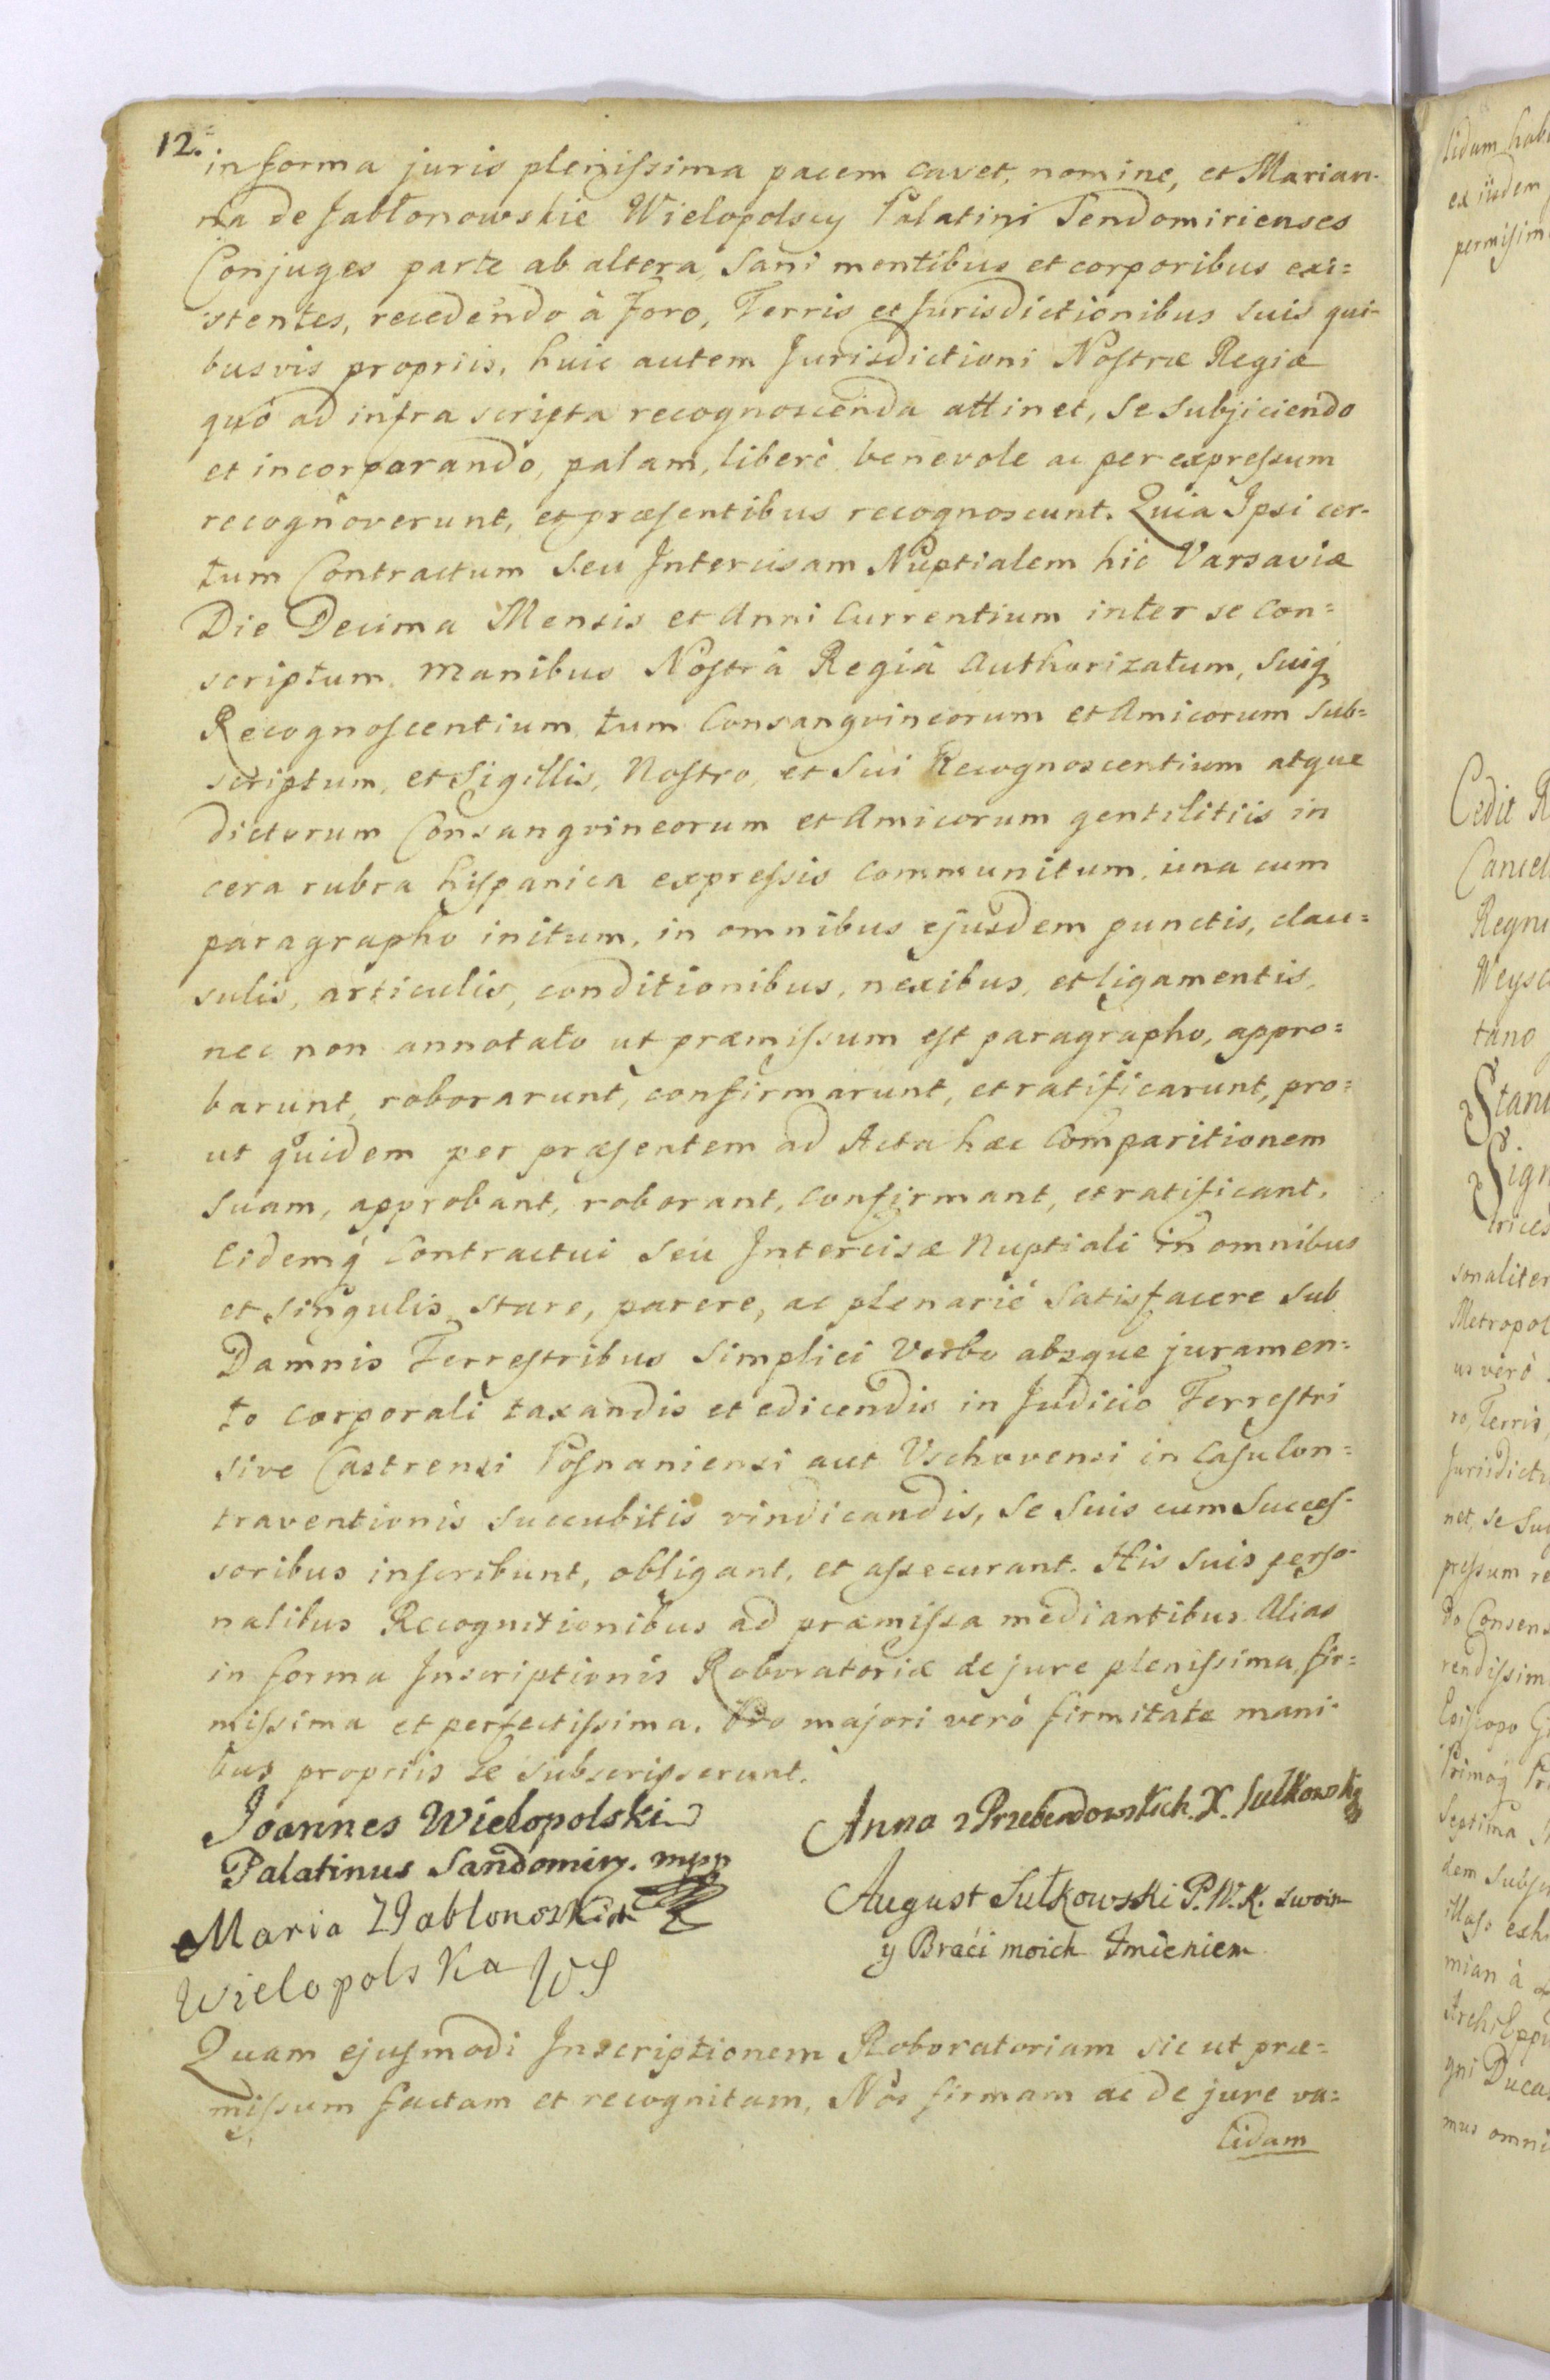 12.
in forma juris plenissima pacem cavet, nomine, et Marian-
na de Jabłonowskie Wielopolscy Palatini Sendomirienses
Conjuges parte ab altera, Sani mentibus et corporibus exi=
stentes, recedendo à Foro, Terris et Jurisdictionibus suis qui-
busvis propriis, huic autem Jurisdictioni Nostræ Regiæ
quò ad infra scripta recognoscenda attinet, se subjiciendo
et incorporando, palam, liberè benevole ac per expressum
recognoverunt, et præsentibus recognoscunt. Quia Ipsi cer-
tum Contractum seu Intercisam Nuptialem hic Varsaviæ
Die Decima Mensis et Anni Currentium inter se con=
scriptum, manibus Nostrâ Regiâ Authorizatum, Suiq
Recognoscentium tum Consangvineorum et Amicorum sub=
scriptum, et Sigillis, Nostro, et Sui Recognoscentium atque
dictorum Consangvineorum et Amicorum gentilitiis in
cera rubra hispanica expressis communitum, una cum
paragrapho initum, in omnibus ejusdem punctis, clau=
sulis, articulis, conditionibus, nexibus, et ligamentis,
nec non annotato ut præmissum est paragrapho, appro=
barunt, roborarunt, confirmarunt, et ratificarunt, pro=
ut quidem per præsentem ad Acta hæc Comparitionem
suam, approbant, roborant, confirmant, et ratificant.
Eidemq́ Contractui seu Intercisæ Nuptiali in omnibus
et singulis stare, parere, ac plenariè satisfacere sub
Damnis Terrestribus simplici Verbo absque juramen=
to corporali taxandis et edicendis in Judicio Terrestri
sive Castrensi Posnaniensi aut Vschovensi in Casu Con=
traventionis succubitis vindicandis, se suis cum Succes-
soribus inscribunt, obligant, et assecurant. His suis perso-
nalibus Recognitionibus ad præmissa mediantibus. Alias
in forma Inscriptionis Roboratoriæ de jure plenissima, fir=
missima et perfectissima. Pro majori verò firmitate mani-
bus propriis se subscripserunt.
Joannes Wielopolski
Palatinus Sandomiry. mpp
Maria z Jablonoskich
Wielopolska WS
Anna z Przebendowskich X. Sułkowska
August Sułkowski P.W.K. swoim
y Braći moich Imieniem
Quam ejusmodi Inscriptionem Roboratoriam sic ut præ=
missum factam et recognitam, Nos firmam ac de jure va=
lidam
lidam hab
ex iisdem
permisim
Cedit R
Cancel
Regni
Weyse
tano
Stani
Sign
trices
sonaliter
Metropol
us verò
ro, Terris,
Jurisdicti
net, se su
pressum re
do Consens
rendissim
Episcopo G
Primoq́ Pr
Septima
dem subsc
illass exh
mian à
ArchiEpp
gni Duca
mus omni